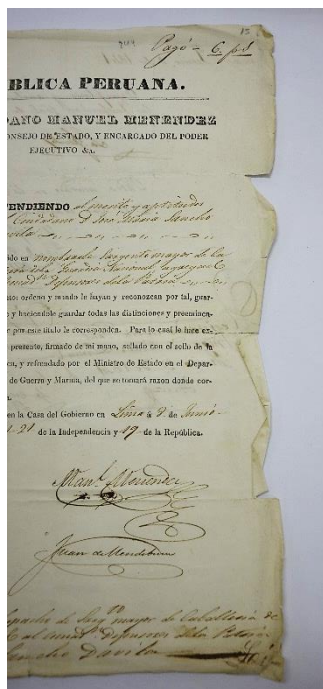 944
15
Pagó – 6. ps
BLICA PERUANA.
DANO MANUEL MENENDEZ
ONSEJO DE ESTADO, Y ENCARGADO DEL PODER
EJECUTIVO &A.
TENDIENDO al merito y aptitudes
Ciudadano D. José Maria Sancho
avila
do en nombrarle Sargento mayor de la
Guardia Nacional
Defensores de la Patria
mo: ordeno y mando le hayan y reconozcan por tal, guar-
y haciendole guardar todas las distinciones y preeminen-
e por este titulo le corresponden. Para lo cual le hice ex-
presente, firmado de mi mano, sellado con el sello de la
ca, y refrendado por el Ministro de Estado en el Depar-
de Guerra y Marina, del que se tomará razon donde cor-
a.
en la Casa del Gobierno en Lima á 8. de Junio
21 de la Independencia y 19 de la República.
Manl. Menendez
Juan de Mendiburu
espacho de Sargto mayor de Caballeria de
Defensores de la Patria
Sancho Davila